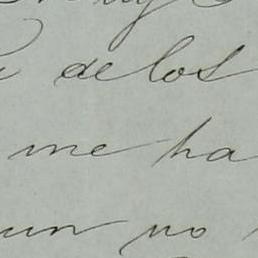 de los
me ha
un no